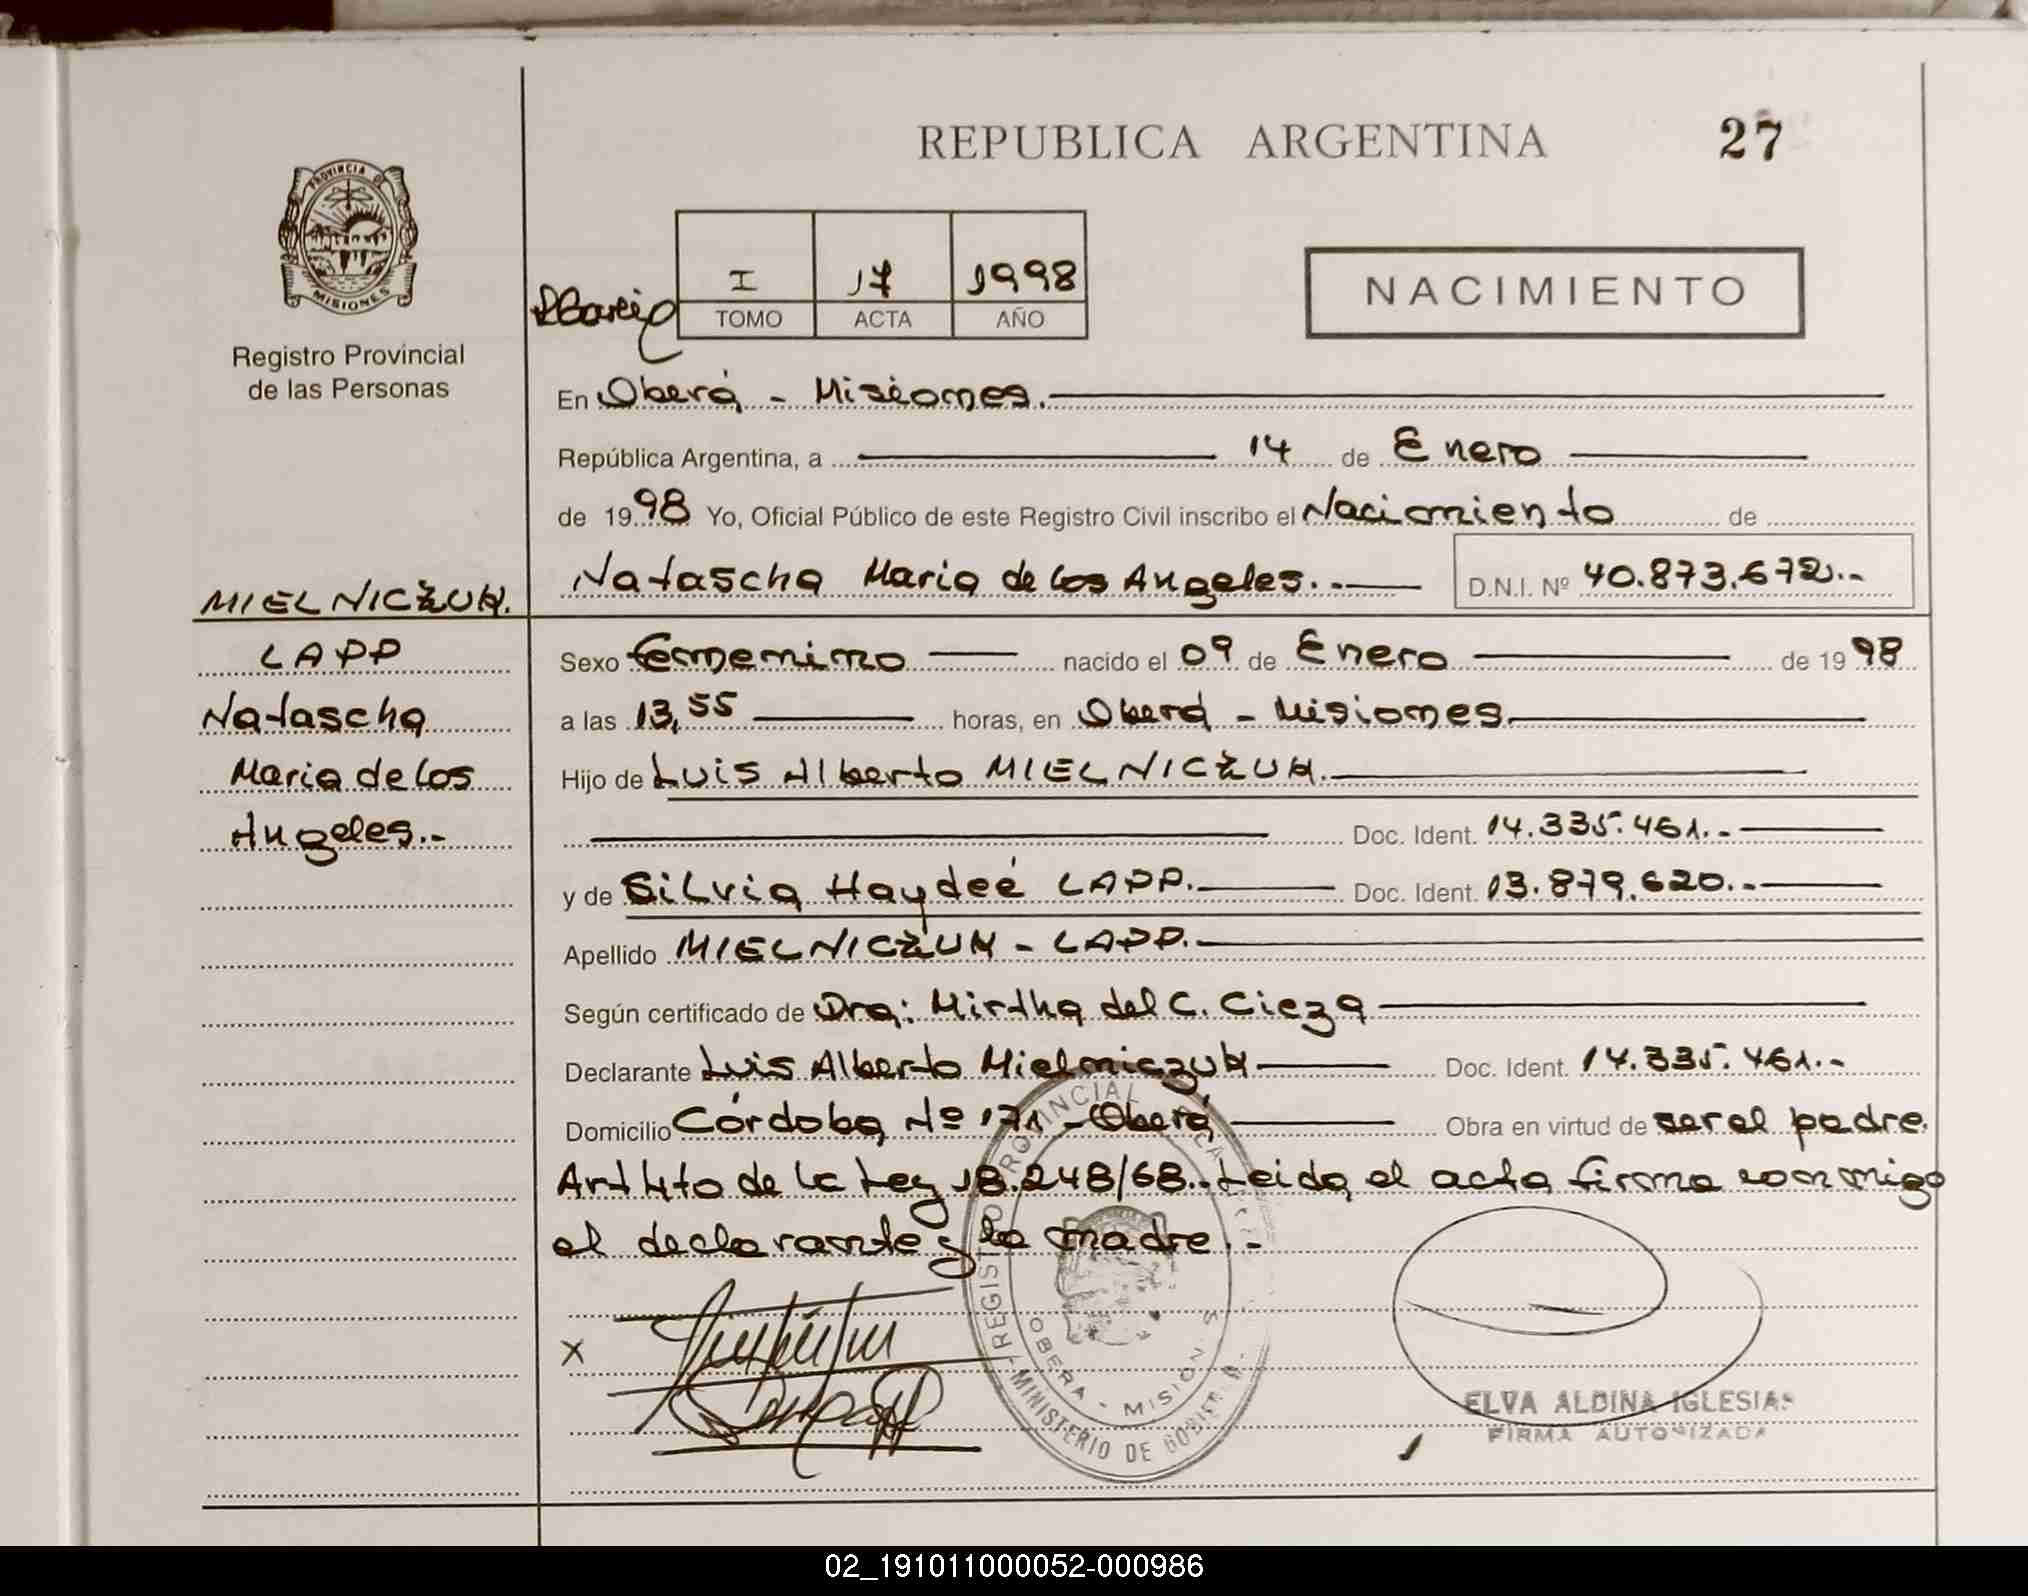 REPUBLICA ARGENTINA 27
PROVINCIA DE
MISIONES
Registro Provincial
de las Personas
I 17 1998
TOMO ACTA AÑO
NACIMIENTO
En Oberá - Misiones.
República Argentina, a 14 de Enero
de 1998 Yo, Oficial Público de este Registro Civil inscribo el Nacimiento de
Natascha Maria de los Angeles.- D.N.I. Nº 40.873.672.-
MIELNICZUK.
LAPP
Natascha
Maria de los
Angeles.-
Sexo femenino nacido el 09 de Enero de 1998
a las 13,55 horas, en Oberá - Misiones.
Hijo de Luis Alberto MIELNICZUK.
Doc. Ident. 14.335.461.-
y de Silvia Haydeé LAPP. Doc. Ident. 13.879.620.-
Apellido MIELNICZUK - LAPP.
Según certificado de Dra: Mirtha del C. Cieza
Declarante Luis Alberto Mielniczuk Doc. Ident. 14.335.461.-
Domicilio Córdoba Nº 171 - Oberá Obra en virtud de ser el padre.
Art 4to de la Ley 18.248/68.- Leida el acta firma conmigo
el declarante y la madre.-
X
REGISTRO PROVINCIAL
OBERA - MISIONES
MINISTERIO DE GOBIERNO
ELVA ALDINA IGLESIAS
FIRMA AUTORIZADA
02_191011000052-000986